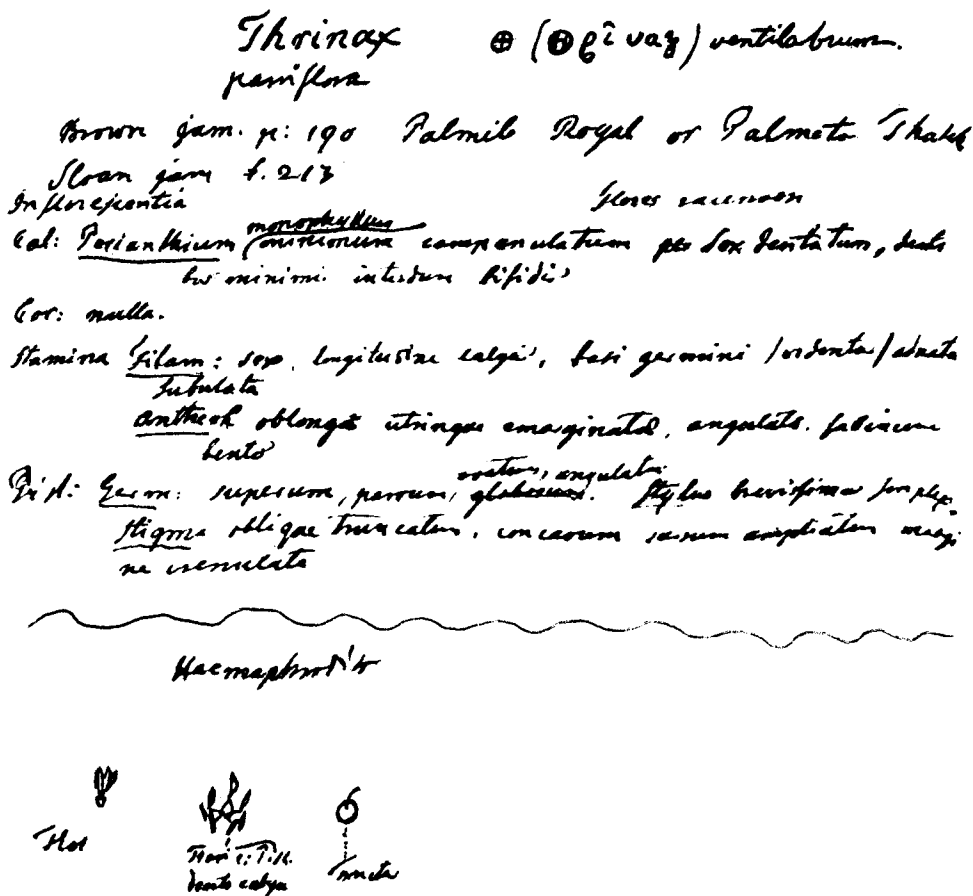 Thrinax ⊕ (Θρῖναξ) ventilabrum.
parviflora
Brown jam. p: 190 Palmito Royal or Palmeto Thatch
Sloan jam t. 213
Inflorescentia flores racemosi
monophyllum
Cal: Perianthium minimum campanulatum sex dentatum, denti
bus minimis interdum bifidis
Cor: nulla.
Stamina Filam: sex, longitudine calycis, basi germini adnata
subulata
Antherae oblongae utrinque emarginatae, angulato.
ovatum, angulatum
Pist: Germ: superum, parvum, globosum. Stylus brevissimus simplex.
Stigma oblique truncatum, concavum sursum ampliatum margi
ne crenulata
Haermaphrodit
Flos
Floris: Pist.
calyx
Fructus